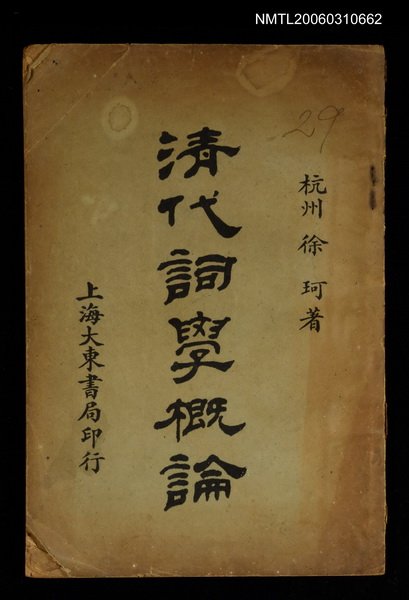 NMTL20060310662
29
杭州 徐珂著
清代詞學概論
上海大東書局印行